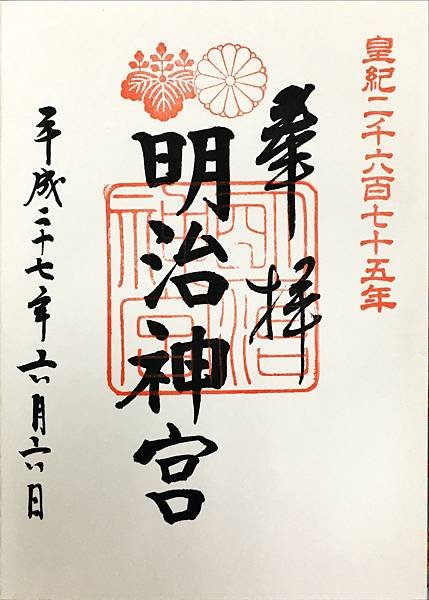 皇紀二千六百七十五年
奉拝
明治神宮
平成二十七年六月六日
明治神宮